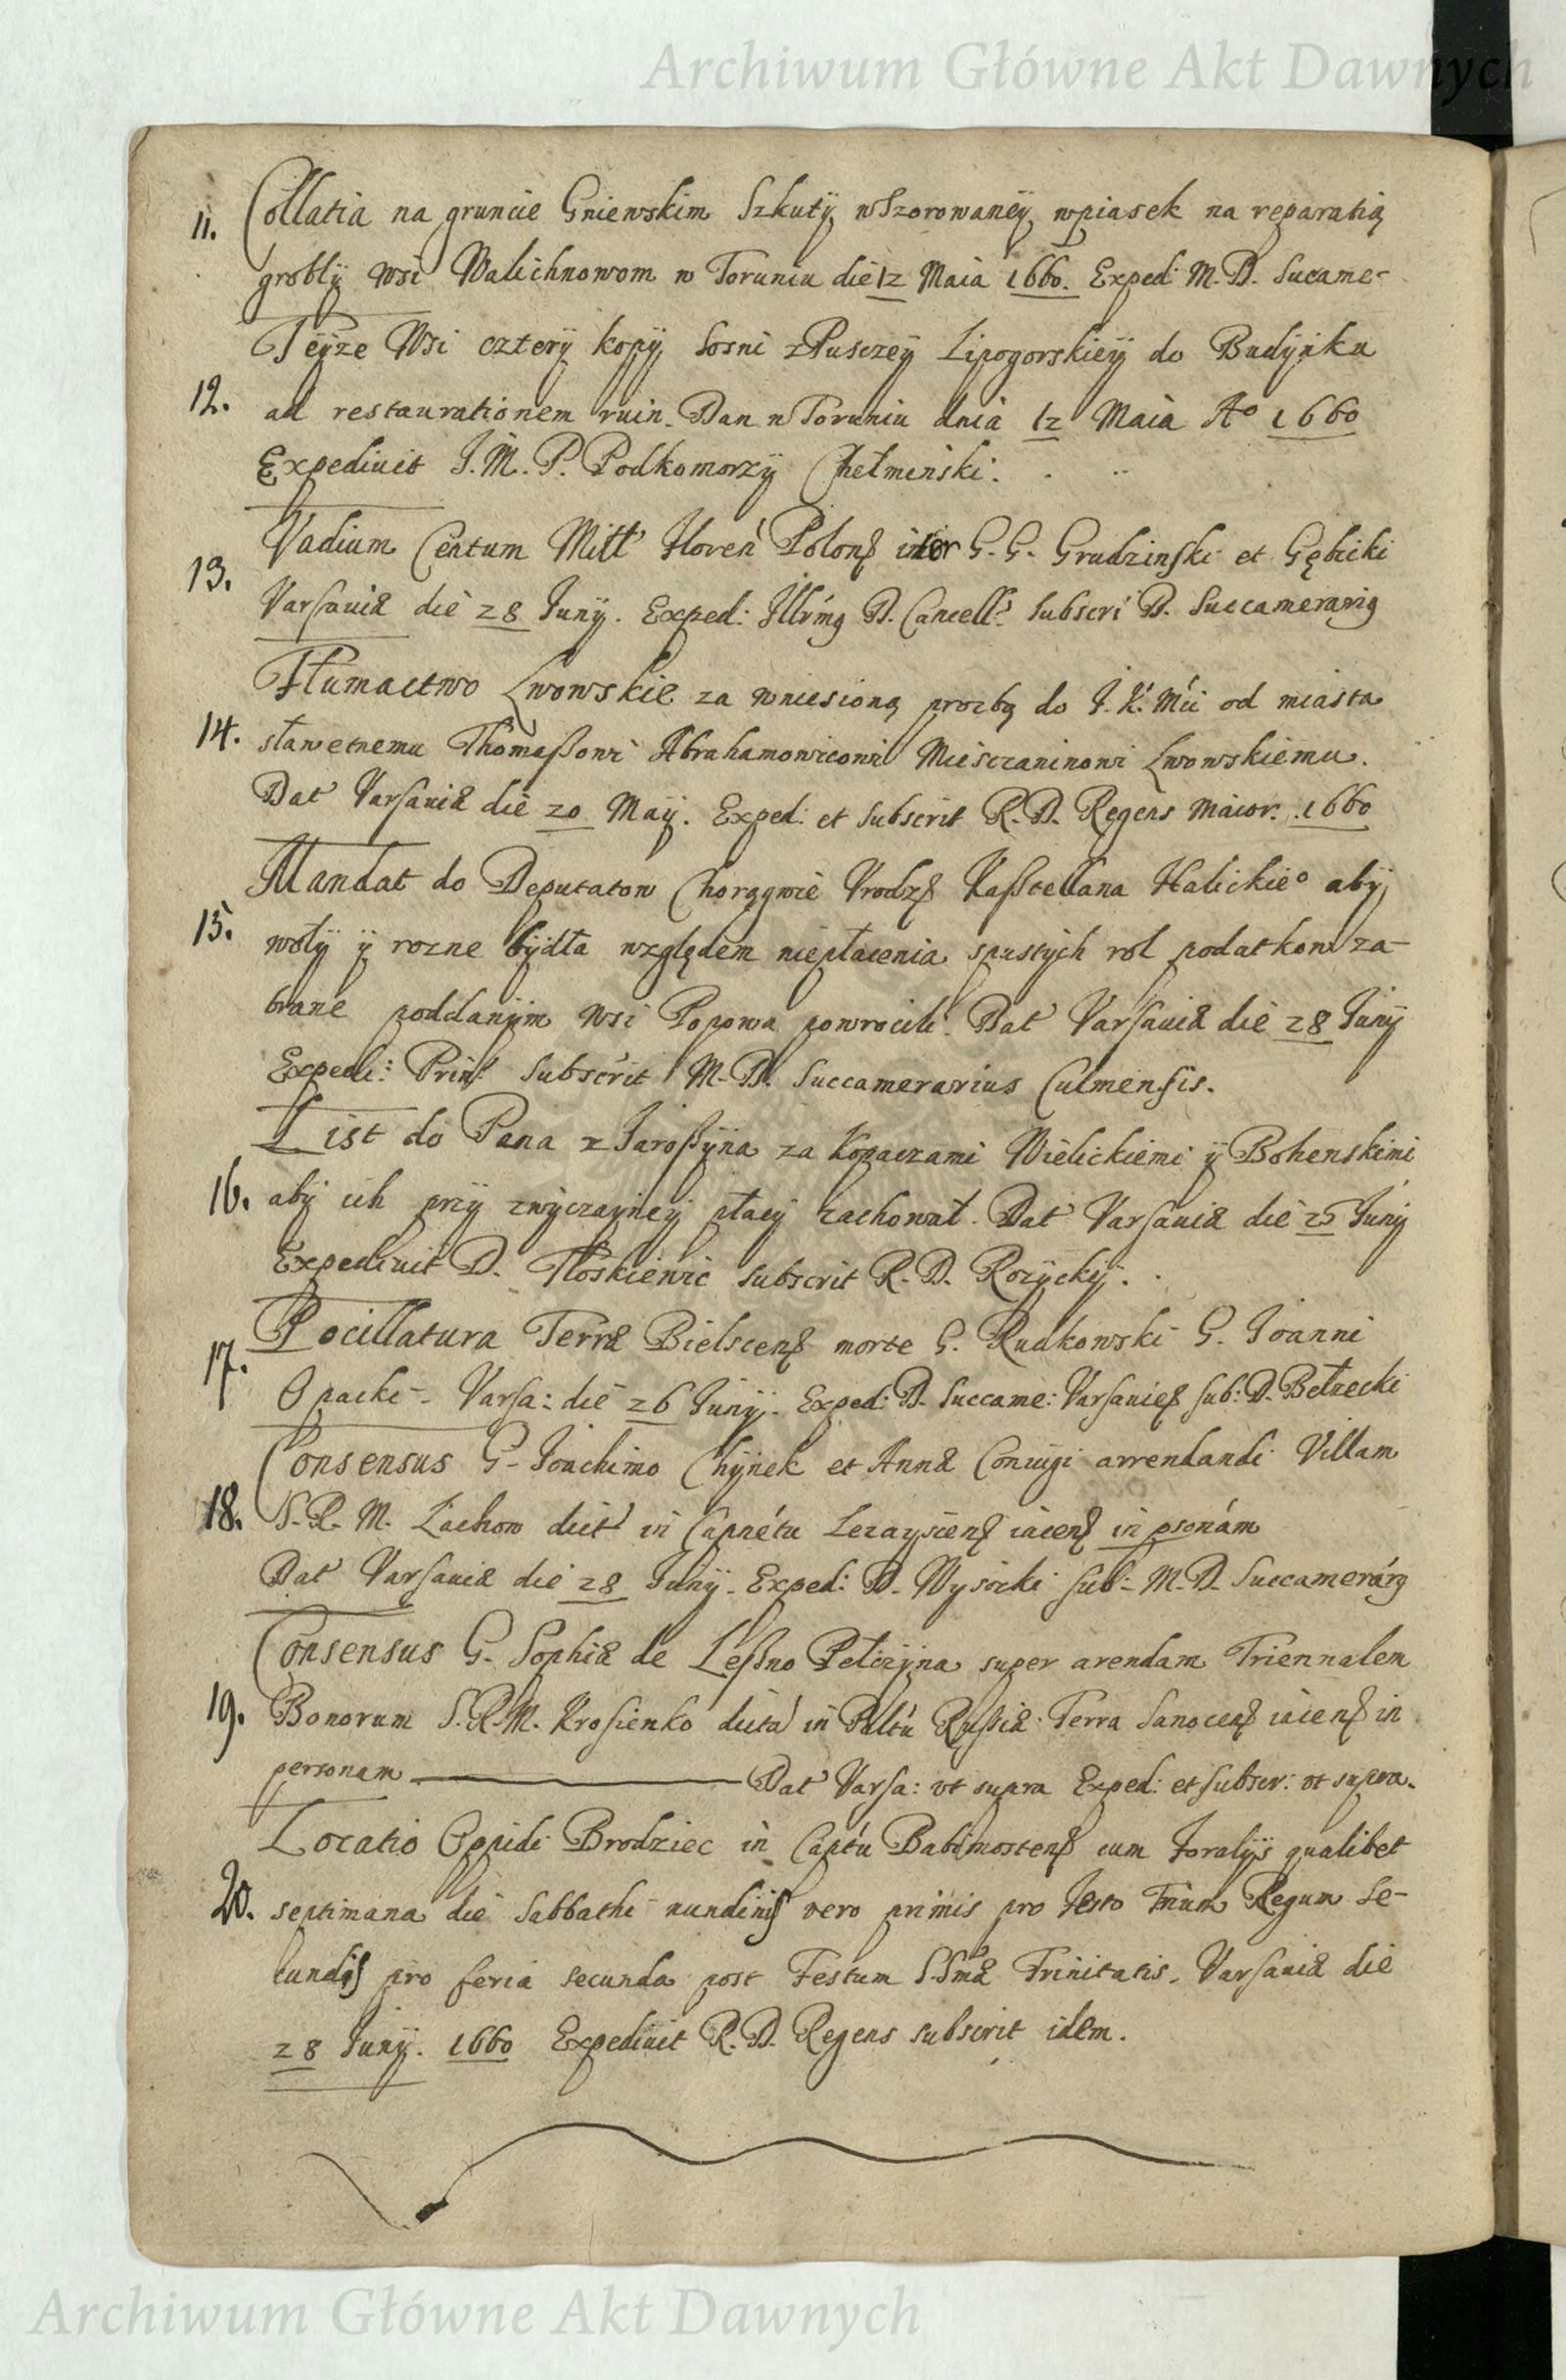 Archiwum Główne Akt Dawnych
11. Collatia na gruncie Gniewskim Szkuty wszorowaney wpiasek na reparatią
grobly wsi Walichnowom w Toruniu die 12 Maia 1660. Exped: M. D. Sucame-
Teyze Wsi cztery kopy sosni z Pusczey Lipogorskiey do Budynku
12. ad restaurationem ruin. Dan w Toruniu dnia 12 Maia Aº 1660
Expediuit J. M. P. Podkomorzy Chełminski.
Vadium Centum Mill Floren Polon inter G. G. Grudzinski et Gębicki
13. Varsauiæ die 28 Juny. Exped: Illrmg D. Cancell. Subscri D. Succamerarig
Tłumactwo Lwowskie za wniesioną prozbą do J. K. Mci od miasta
14. sławetnemu Thomaszowi Abrahamowiczowi Miesczaninowi Lwowskiemu.
Dat Varsauiæ die 20 May. Exped: et subscrit R. D. Regens Maior. 1660
Mandat do Deputatow Chorągwie Vrodz Kasztellana Halickieº aby
15. woły y rozne bydła względem niepłacenia spustych rol podatkow za-
brane poddanym wsi Popowa powrocili. Dat Varsauiæ die 28 Juny
Exped: Prin: Subscrit M. D. Succamerarius Culmensis.
List do Pana z Jaroszyna za Kopaczami Wielickiemi y Bohenskimi
16. aby ich przy zwyczayney płacy zachował. Dat Varsauiæ die 25 Juny
Expediuit D. Tłoskiewic subscrit R. D. Rozycky.
Pocillatura Terræ Bielscens morte G. Rudkowski G. Joanni
17. Opacki - Varsa: die 26 Juny. Exped: D. Succame: Varsauies sub: D. Bełzecki
Consensus G. Joachimo Chynek et Annæ Coniugi arrendandi Villam
18. S. R. M. Lachow dict in Capnétu Lezayscens iacens in psonám
Dat Varsauiæ die 28 Juny. Exped: D. Wysocki sub: M. D. Succamerárg
Consensus G. Sophiæ de Leszno Pełczyna super arendam Triennalem
19. Bonorum S. R. M. Krosienko dicta in Paltu Russiæ Terra Sanocens iacens in
personam Dat Varsa: vt supra Exped: et subscr: vt supra.
Locatio Oppidi Brodziec in Captu Babimostens cum Foralys qualibet
20. septimana die Sabbathi nundinis vero primis pro festo Trium Regum Se-
cundis pro feria secunda post Festum S.Smæ Trinitatis. Varsauiæ die
28 Juny. 1660 Expediuit R. D. Regens subscrit idem.
Archiwum Główne Akt Dawnych